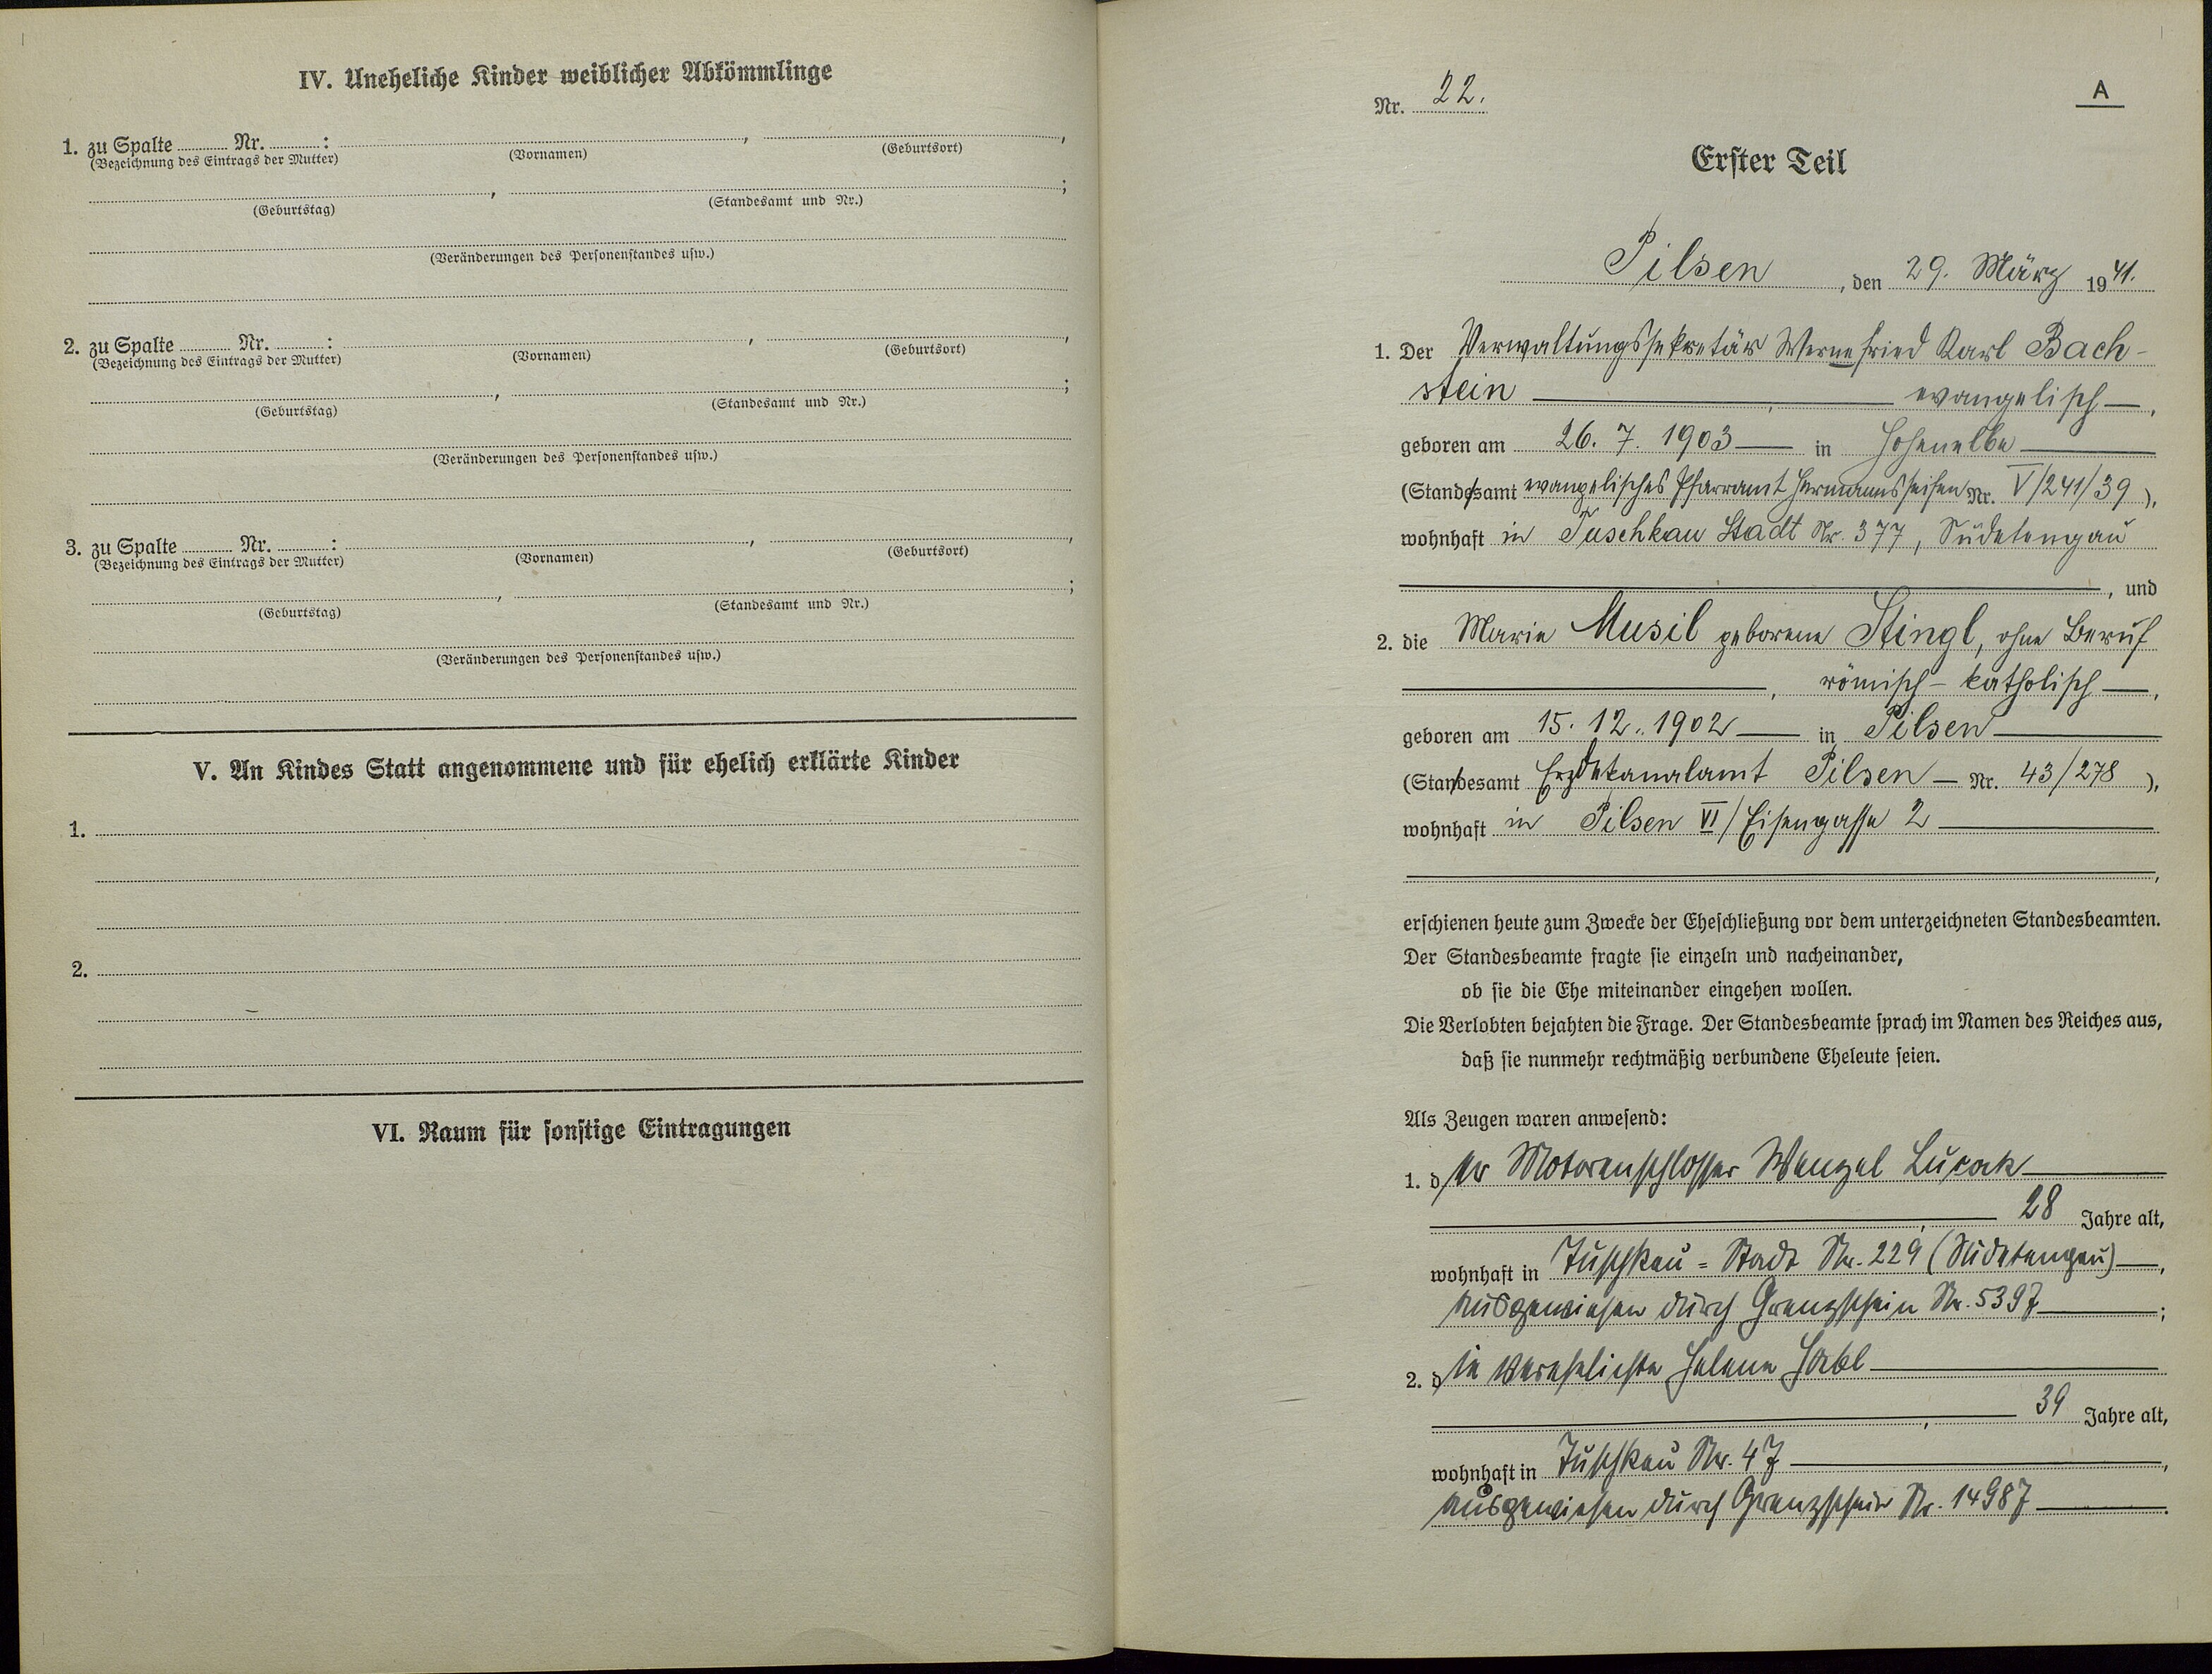 IV. Uneheliche Kinder weiblicher Abkömmlinge
1. zu Spalte ........ Nr. ........ : ........, ........,
(Bezeichnung des Eintrags der Mutter) (Vornamen) (Geburtsort)
........, ........;
(Geburtstag) (Standesamt und Nr.)
(Veränderungen des Personenstandes usw.)
2. zu Spalte ........ Nr. ........ : ........, ........,
(Bezeichnung des Eintrags der Mutter) (Vornamen) (Geburtsort)
........, ........;
(Geburtstag) (Standesamt und Nr.)
(Veränderungen des Personenstandes usw.)
3. zu Spalte ........ Nr. ........ : ........, ........,
(Bezeichnung des Eintrags der Mutter) (Vornamen) (Geburtsort)
........, ........;
(Geburtstag) (Standesamt und Nr.)
(Veränderungen des Personenstandes usw.)
V. An Kindes Statt angenommene und für ehelich erklärte Kinder
1.
2.
VI. Raum für sonstige Eintragungen
Nr. 22.
A
Erster Teil
Pilsen, den 29. März 1941.
1. Der Verwaltungssekretär Wernefried Karl Bach-
stein —, — evangelisch —,
geboren am 26. 7. 1903 — in Hohenelbe —
(Standesamt evangelisches Pfarramt Hermannseifen Nr. V/241/39),
wohnhaft in Tuschkau Stadt Nr. 377, Sudetengau
—, und
2. die Marie Musil geborene Stingl, ohne Beruf
—, römisch-katholisch —,
geboren am 15. 12. 1902 — in Pilsen —
(Standesamt Erzdekanalamt Pilsen — Nr. 43/278),
wohnhaft in Pilsen VI/Eisengasse 2 —
—,
erschienen heute zum Zwecke der Eheschließung vor dem unterzeichneten Standesbeamten.
Der Standesbeamte fragte sie einzeln und nacheinander,
ob sie die Ehe miteinander eingehen wollen.
Die Verlobten bejahten die Frage. Der Standesbeamte sprach im Namen des Reiches aus,
daß sie nunmehr rechtmäßig verbundene Eheleute seien.
Als Zeugen waren anwesend:
1. der Motorenschlosser Wenzel —
—, — 28 Jahre alt,
wohnhaft in Tuschkau-Stadt Nr. 229 (Sudetengau) —,
ausgewiesen durch Grenzschein Nr. 5397 —;
2. die verehelichte Helene —
—, — 39 Jahre alt,
wohnhaft in Tuschkau Nr. 47 —,
ausgewiesen durch Grenzschein Nr. 14987 —.